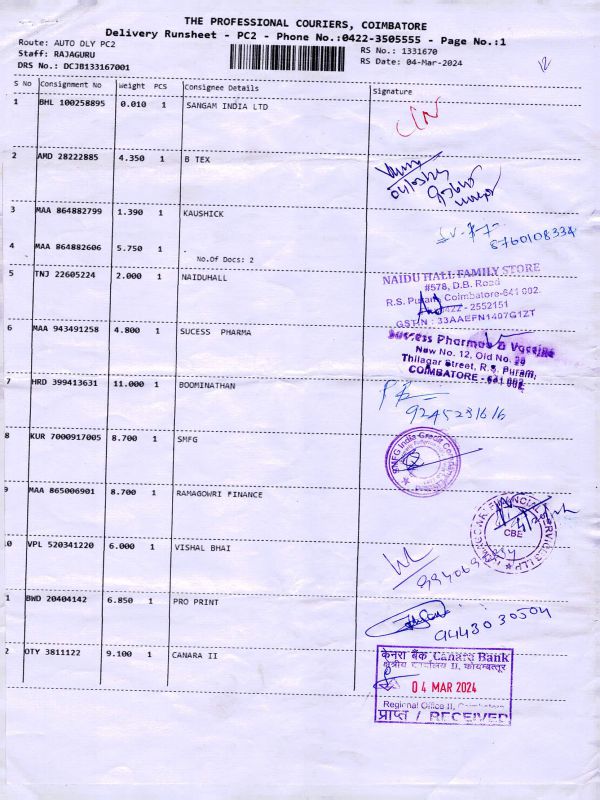 THE PROFESSIONAL COURIERS, COIMBATORE
Delivery Runsheet - PC2 - Phone No.:0422-3505555 - Page No.:1
Route: AUTO DLY PC2
Staff: RAJAGURU
DRS No.: DCJB133167001
RS No.: 1331670
RS Date: 04-Mar-2024
S No Consignment No Weight PCS Consignee Details Signature
1 BHL 100258895 0.010 1 SANGAM INDIA LTD
2 AMD 28222885 4.350 1 B TEX
3 MAA 864882799 1.390 1 KAUSHICK
8760108334
4 MAA 864882606 5.750 1
No.Of Docs: 2
5 TNJ 22605224 2.000 1 NAIDUHALL
NAIDU HALL FAMILY STORE
#578, D.B. Road
R.S. Puram, Coimbatore-641 002.
0422 - 2552151
GSTIN : 33AAEFN1407G1ZT
6 MAA 943491258 4.800 1 SUCESS PHARMA
Success Pharma & Vaccine
New No. 12, Old No. 29
Thilagar Street, R.S. Puram,
COIMBATORE - 641 002.
7 HRD 399413631 11.000 1 BOOMINATHAN
9245231616
8 KUR 7000917005 8.700 1 SMFG
SMFG India Credit
9 MAA 865006901 8.700 1 RAMAGOWRI FINANCE
CBE
10 VPL 520341220 6.000 1 VISHAL BHAI
1 BWD 20404142 6.850 1 PRO PRINT
9443030504
2 OTY 3811122 9.100 1 CANARA II
केनरा बैंक Canara Bank
क्षेत्रीय कार्यालय II, कोयम्बत्तूर
04 MAR 2024
Regional Office II, Coimbatore
प्राप्त / RECEIVED